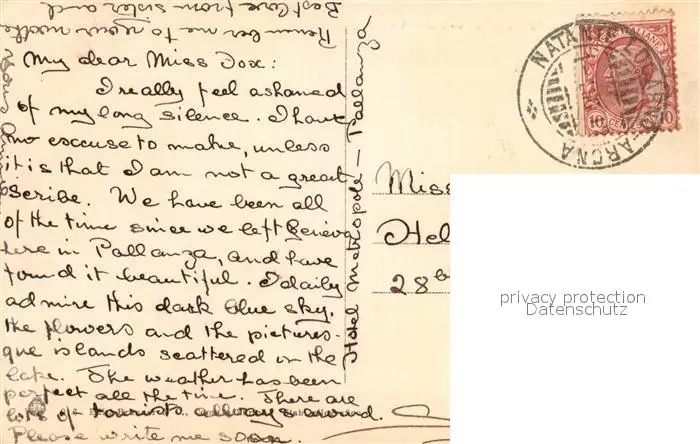 My dear Miss Dox:
I really feel ashamed
of my long silence. I have
no excuse to make, unless
it is that I am not a great
scribe. We have been all
of the time since we left Geneva
here in Pallanza, and have
found it beautiful. I daily
admire this dark blue sky,
the flowers and the pictures-
que islands scattered in the
lake. The weather has been
perfect all the time. There are
lots of tourists allways around.
Please write me soon.
Remember me to your mother
Best love from sister and
Hotel Metropole – Pallanza
Miss
Hel
28
ARONA
10
10
privacy protection
Datenschutz